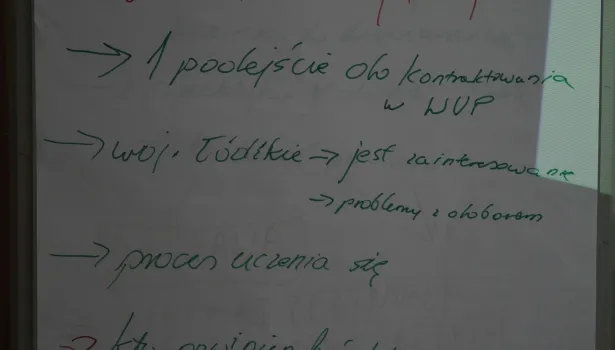 → 1 podejście do kontraktowania
w WUP
→ woj. Łódzkie → jest zainteresowane
→ problemy z doborem
→ proces uczenia się
→ kto powinien